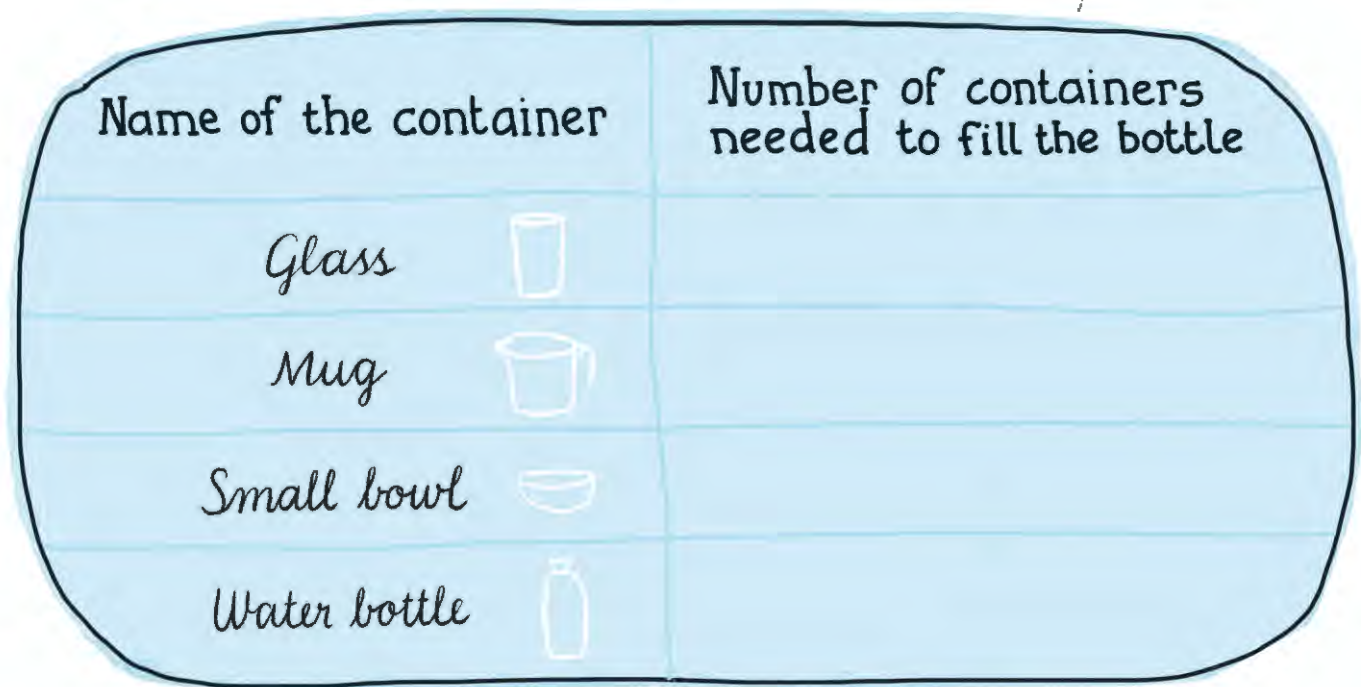 Name of the container
Number of containers
needed to fill the bottle
Glass
Mug
Small bowl
Water bottle